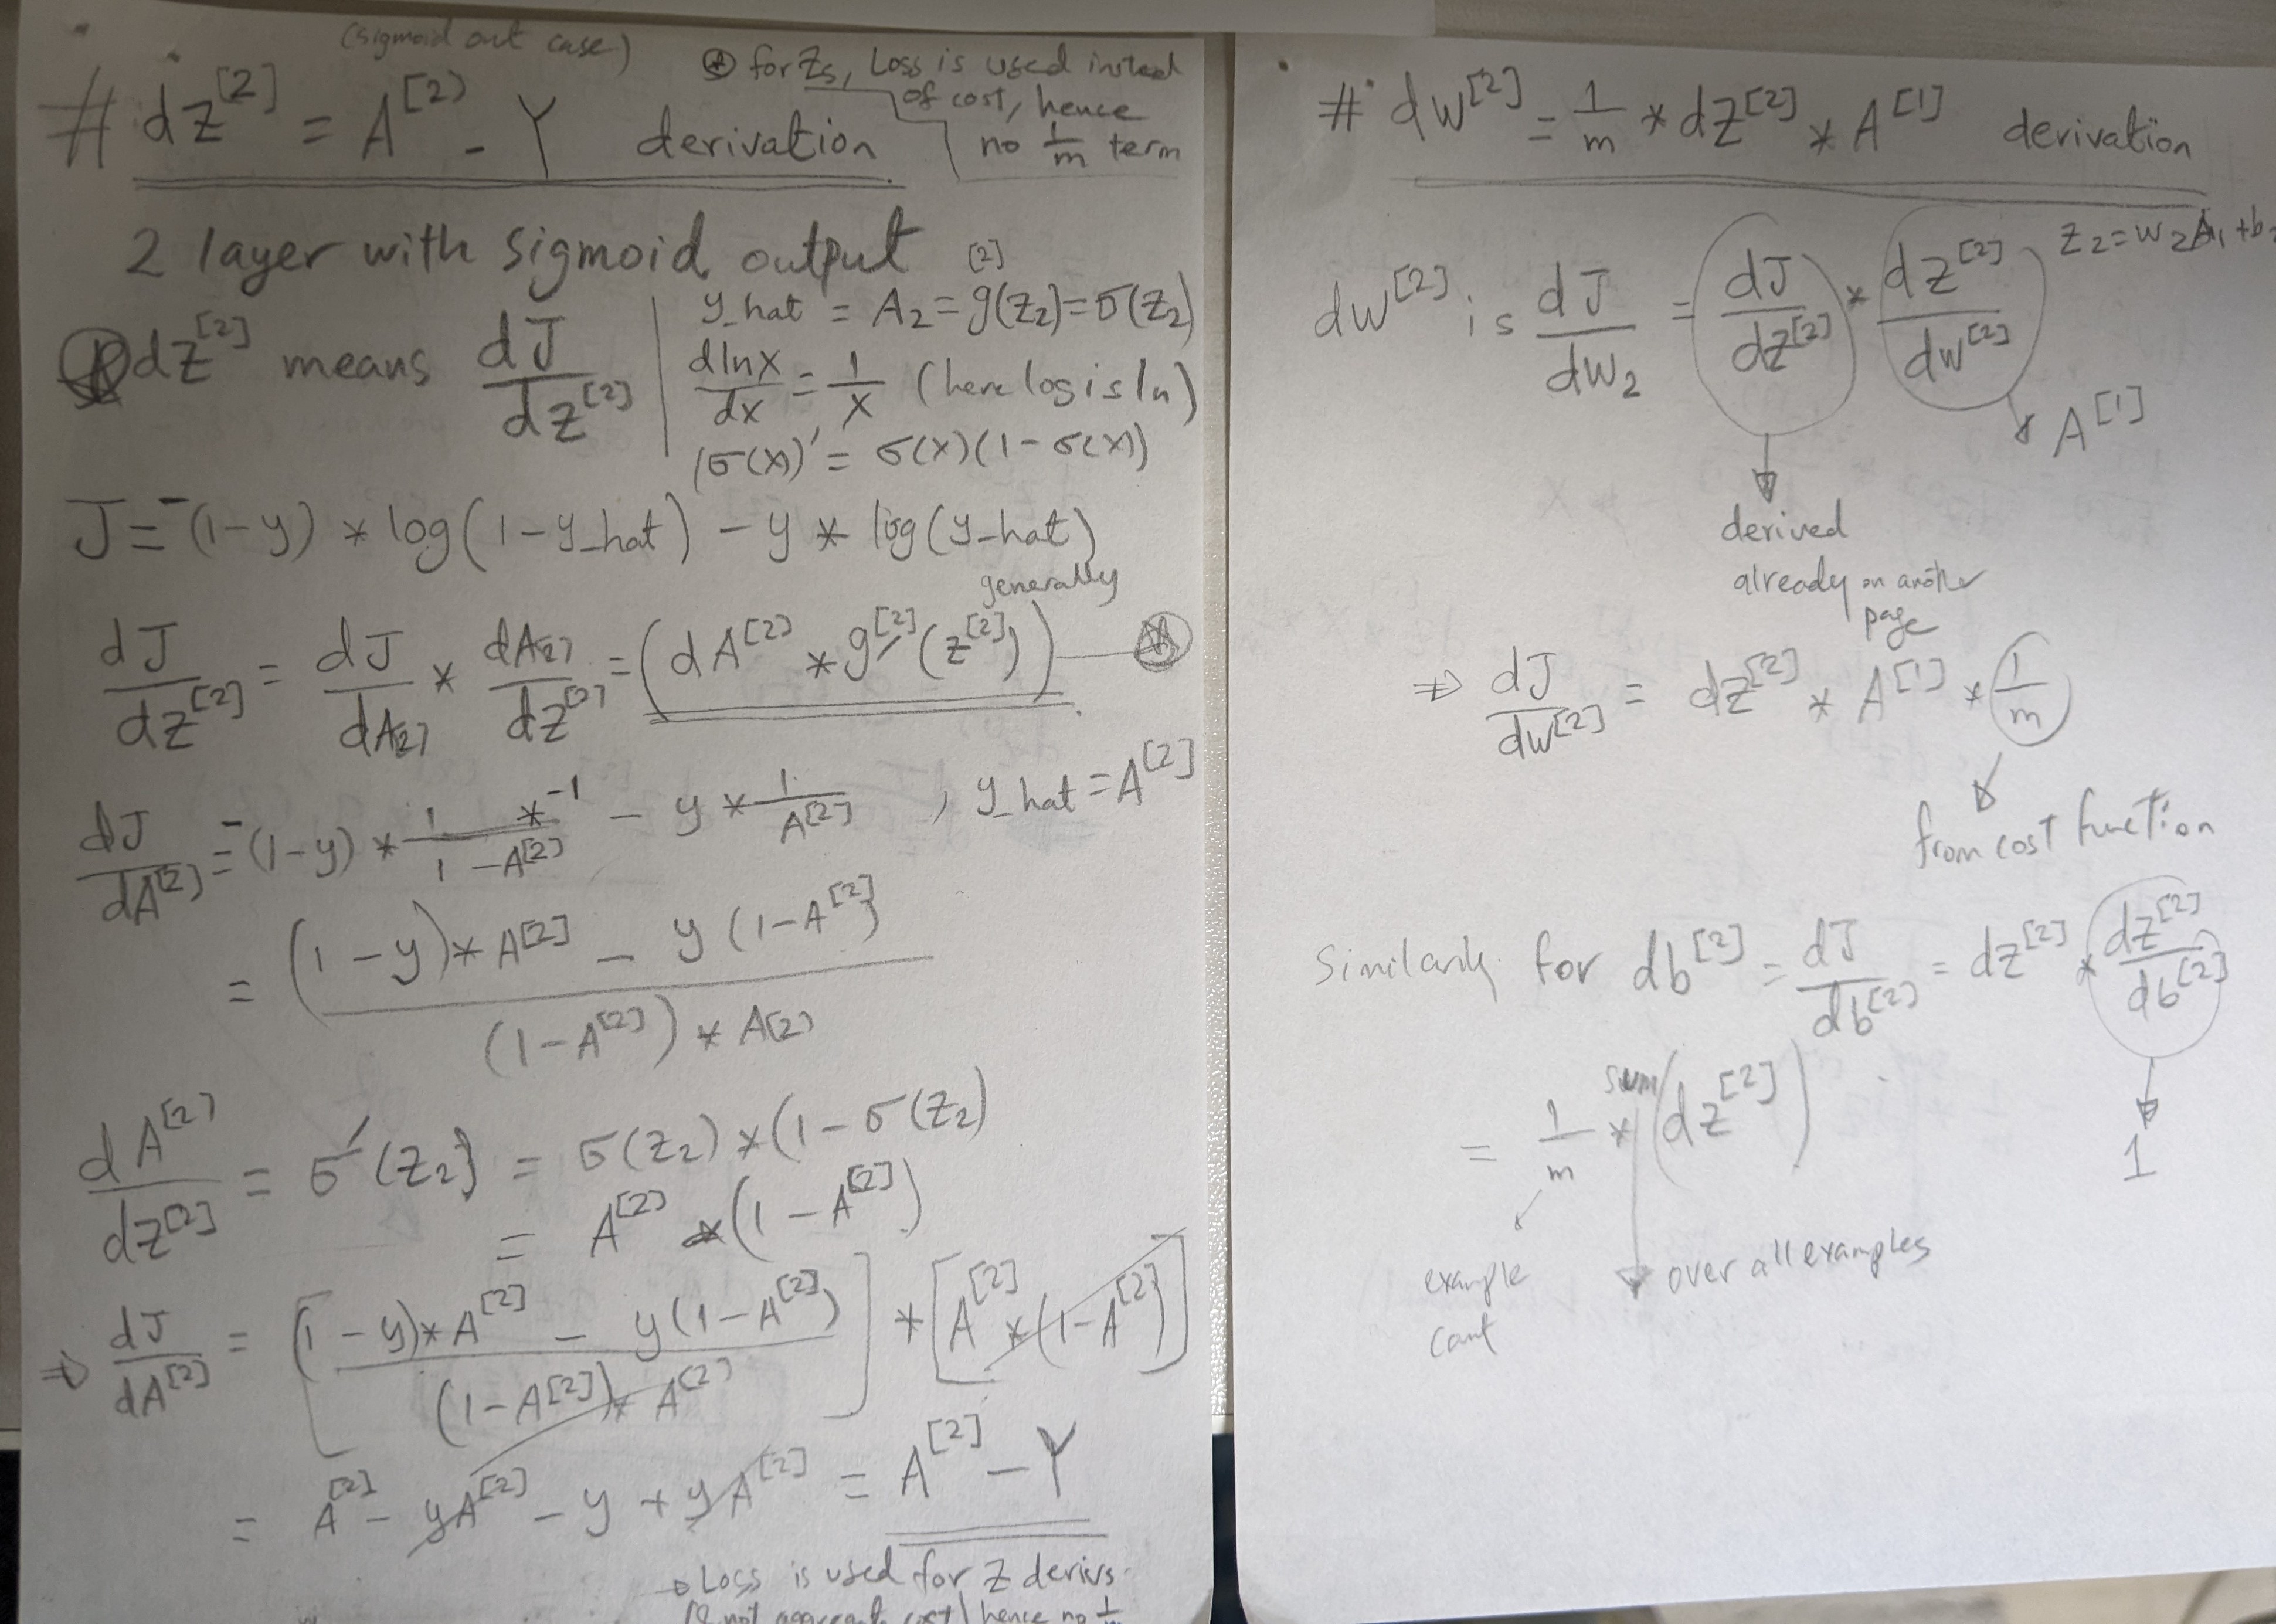 (sigmoid out case)
# dz^[2] = A^[2] - Y derivation
⊛ for Zs, Loss is used instead
of cost, hence
no 1/m term
2 layer with sigmoid output
dz^[2] means dJ/dz^[2]
[2]
y_hat = A2 = g(z2) = σ(z2)
dlnx/dx = 1/x (here log is ln)
(σ(x))' = σ(x)(1 - σ(x))
J = -(1-y) * log(1-y_hat) - y * log(y_hat)
generally
dJ/dz^[2] = dJ/dA[2] * dA[2]/dz^[2] = (dA^[2] * g^[2]'(z^[2]))
dJ/dA^[2] = -(1-y) * 1/(1-A^[2]) * -1 - y * 1/A^[2] , y_hat = A^[2]
= ((1-y) * A^[2] - y(1-A^[2])) / ((1-A^[2]) * A[2])
dA^[2]/dz^[2] = σ'(z2) = σ(z2) * (1 - σ(z2)
= A^[2] * (1 - A^[2])
⇒ dJ/dA^[2] = [((1-y) * A^[2] - y(1-A^[2])) / ((1-A^[2]) * A^[2])] * [A^[2] * (1-A^[2])]
= A^[2] - yA^[2] - y + yA^[2] = A^[2] - Y
→ Loss is used for Z derivs.
not aggregate cost) hence no 1/m
# dw^[2] = 1/m * dz^[2] * A^[1] derivation
z2 = w2A1 + b2
dw^[2] is dJ/dw2 = dJ/dz^[2] * dz^[2]/dw^[2]
A^[1]
derived
already on another
page
⇒ dJ/dw^[2] = dz^[2] * A^[1] * 1/m
from cost function
Similarly for db^[2] = dJ/db^[2] = dz^[2] * dz^[2]/db^[2]
1
= 1/m * sum(dz^[2])
example
cont
over all examples